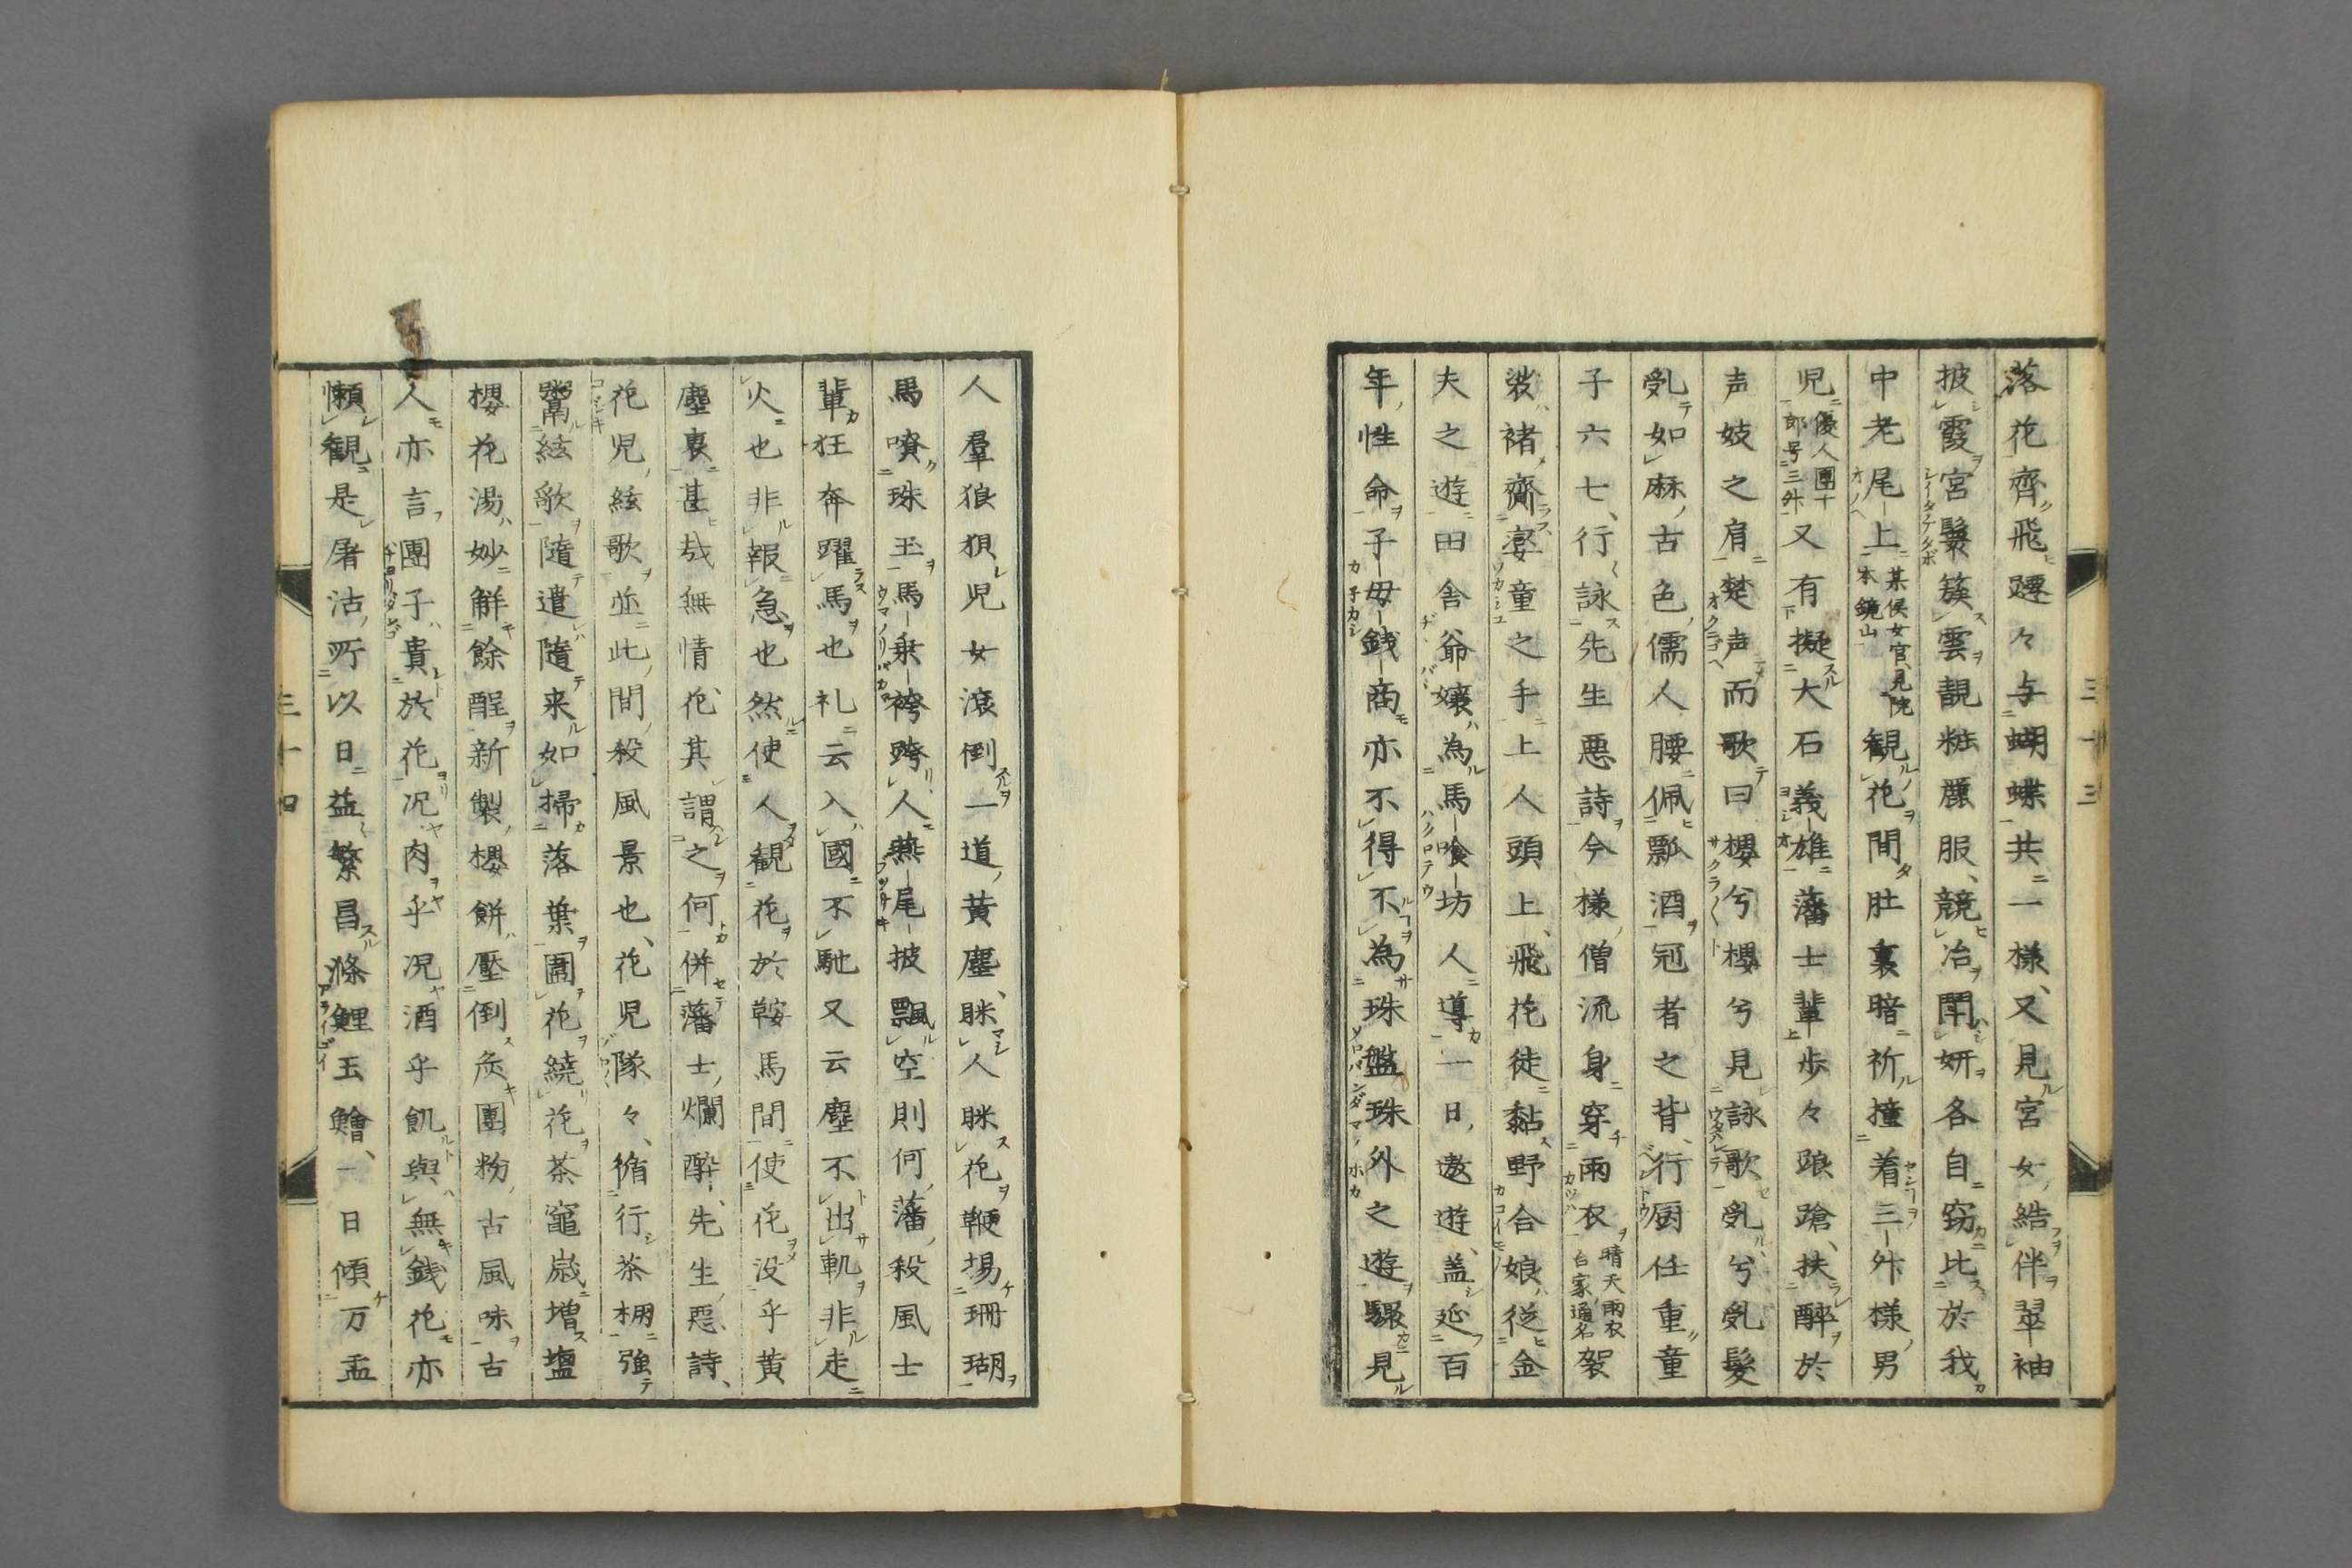 落花齊飛蹮々与蝴蝶共一様、又見宮女結伴翠袖
披霞宮鬟簇雲靚粧麗服、競冶閙妍各自窈比於我
中老尾上 某侯女官、見院本鏡山 観花間肚裏暗祈撞着三舛様男
児 優人團十郎号三舛 又有擬大石義雄藩士輩歩々踉蹌、扶醉於
声妓之肩楚声而歌曰櫻兮櫻兮見詠歌乱兮乱髪
乱如麻古色儒人腰佩瓢酒冠者之背、行厨任重童
子六七、行詠先生悪詩今様僧流身穿雨衣 晴天雨衣台家通名 袈
裟褚齎窓童之手上人頭上、飛花徒黏野合娘従金
夫之遊田舎爺孃為馬喰坊人導一日遨遊、盖延百
年性命子母銭商亦不得不為珠盤珠外之遊驟見
三十三
人羣狼狽児女滾倒一道黄塵、眯人眯花鞭揚珊瑚
馬噴珠玉馬乗袴跨人燕尾披飄空則何藩殺風士
輩狂奔躍馬也礼云入國不馳又云塵不出軌非走
火也非報急也然使人観花於鞍馬間使花没乎黄
塵裏甚哉無情花其謂之何併藩士爛酔先生悪詩、
花児絃歌並此間殺風景也、花児隊々、循行茶棚強
鬻絃歌隨遣隨来如掃落葉圍花繞花茶竈歳増塩
櫻花湯妙解餘酲新製櫻餅壓倒灸團粉古風味古
人亦言團子貴於花况肉乎况酒乎飢與無銭花亦
懶観是屠沽所以日益繁昌滌鯉玉鱠、一日傾万盂
三十四